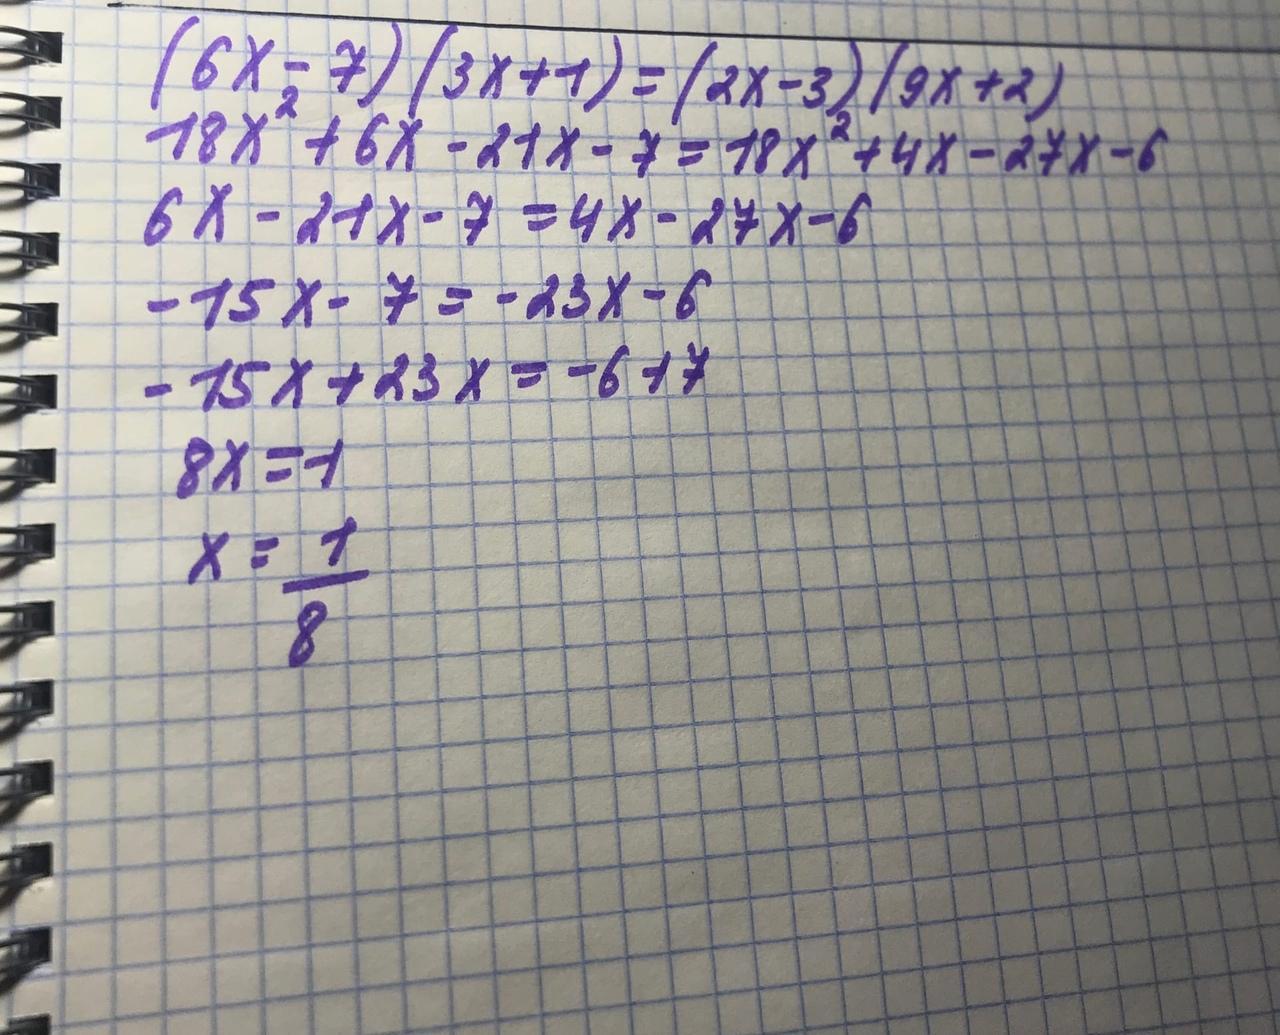 (6x-7)(3x+1)=(2x-3)(9x+2)
18x²+6x-21x-7=18x²+4x-27x-6
6x-21x-7=4x-27x-6
-15x-7=-23x-6
-15x+23x=-6+7
8x=1
x=1/8